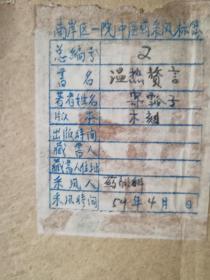 南岸区一院中医药采风标签
总编号 2
书名 温热赘言
著者姓名 寄瓢子
版本 木刻
出版时间
藏书人
藏书人住址
采风人
采风时间 59年4月 日